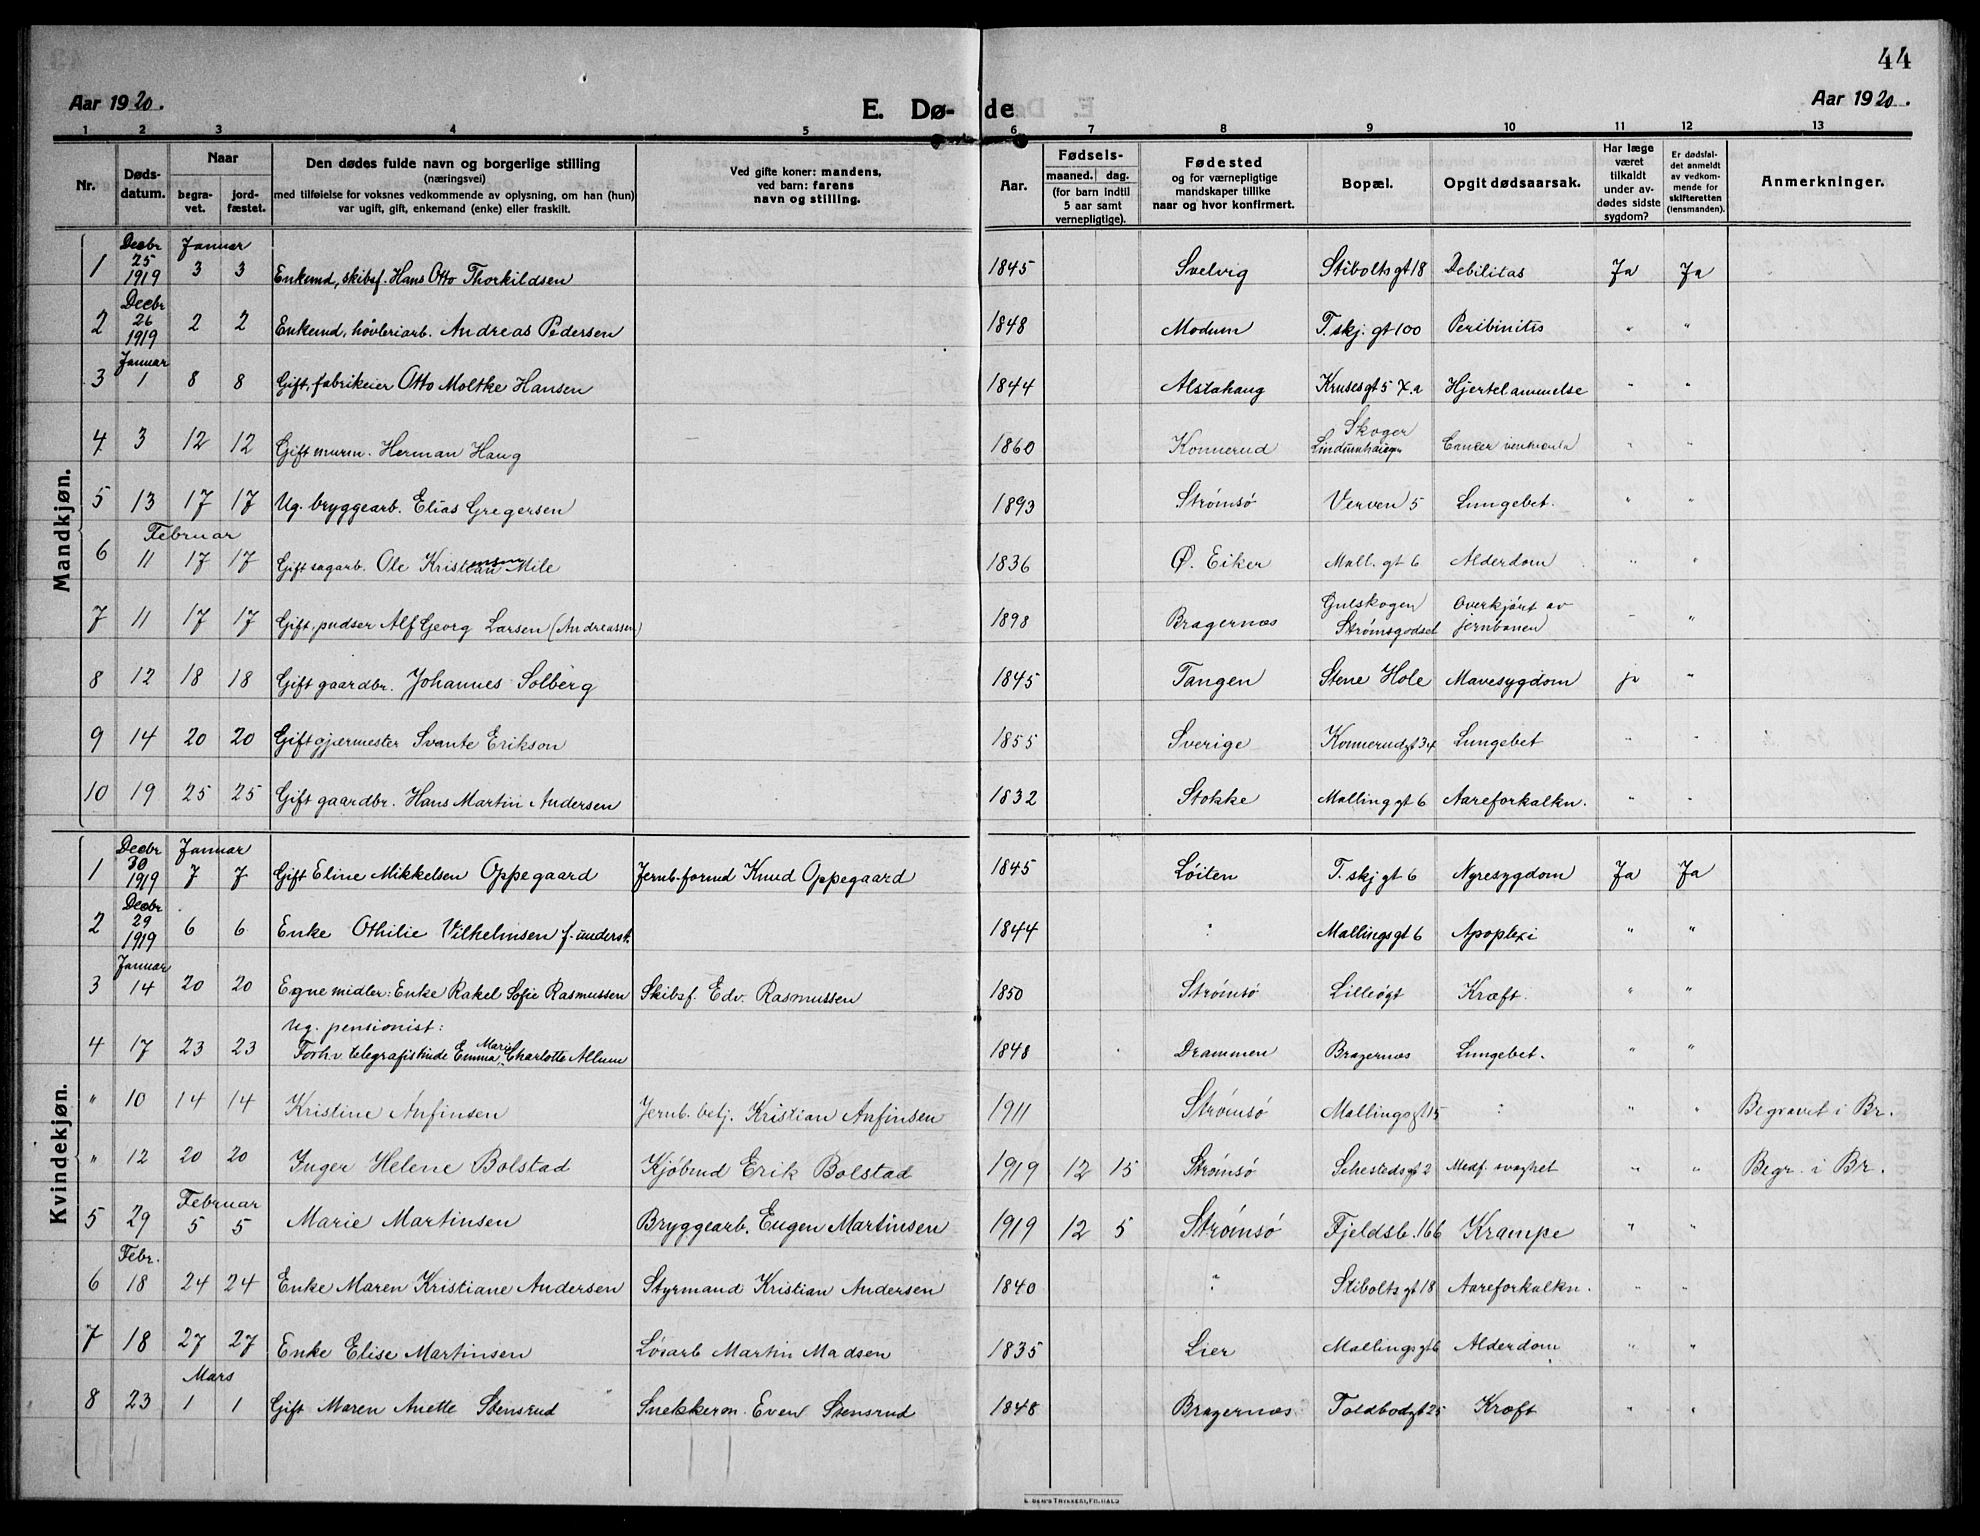 44
Aar 1920.
E. Dø-de
Aar 1920.
1 2 3 4 5 6 7 8 9 10 11 12 13
Nr.
Døds-datum.
Naar
begra-vet.
jord-fæstet.
Den dødes fulde navn og borgerlige stilling
(næringsvei)
med tilføielse for voksnes vedkommende av oplysning, om han (hun)
var ugift, gift, enkemand (enke) eller fraskilt.
Ved gifte koner: mandens,
ved barn: farens
navn og stilling.
Aar.
Fødsels-
maaned. dag.
(for barn indtil
5 aar samt
vernepligtige).
Fødested
og for værnepligtige
mandskaper tillike
naar og hvor konfirmert.
Bopæl.
Opgit dødsaarsak.
Har læge
været
tilkaldt
under av-
dødes sidste
sygdom?
Er dødsfal-
det anmeldt
av vedkom-
mende for
skifteretten
(lensmanden).
Anmerkninger.
Mandkjøn.
1 Decbr 25 1919 Januar 3 3 Enkemd, skibsf. Hans Otto Thorkildsen 1845 Svelvig Stiboltsgt 18 Debilitas Ja Ja
2 Decbr 26 1919 2 2 Enkemd, høvleriarb. Andreas Pedersen 1848 Modum T. skj. gt 100 Peribinitis " "
3 Januar 1 8 8 Gift, fabrikeier Otto Moltke Hansen 1844 Alstahaug Krusesgt 5 Hjertelammelse " "
4 3 12 12 Gift murm. Herman Haug 1860 Konnerud Skoger Cancer " "
5 13 17 17 Ug. bryggearb. Elias Gregersen 1893 Strømsø Verven 5 Lungebet. " "
Februar
6 11 17 17 Gift sagarb. Ole Kristensen Mile 1836 Ø. Eiker Mall. gt 6 Alderdom " "
7 11 17 17 Gift, pudser Alf Georg Larsen (Andreassen) 1898 Bragernæs Gulskogen Strømsgodset Overkjørt av jernbanen - "
8 12 18 18 Gift gaardbr. Johannes Solberg 1845 Tangen Stene Hole Mavesygdom ja "
9 14 20 20 Gift gjærmester Svante Erikson 1855 Sverige Konnerudgt 34 Lungebet " "
10 19 25 25 Gift gaardbr. Hans Martin Andersen 1832 Stokke Malling gt 6 Aareforkalkn. " "
Kvindekjøn.
1 Decbr 30 1919 Januar 7 7 Gift Eline Mikkelsen Oppegaard Jernb. formd Knud Oppegaard 1845 Løiten T. skj gt 6 Nyresygdom Ja Ja
2 Decbr 29 1919 6 6 Enke Othilie Vilhelmsen f. underst. 1844 " Mallingsgt 6 Apoplexi " "
3 Januar 14 20 20 Egne midler: Enke Rakel Sofie Rasmussen Skibsf. Edv. Rasmussen 1850 Strømsø Lilleøgt Kræft. " "
4 17 23 23 Ug. pensionist: Forhv telegrafistinde Emma Marie Charlotte Allum 1848 Drammen Bragernæs Lungebet. " "
" 10 14 14 Kristine Anfinsen Jernb. betj. Kristian Anfinsen 1911 Strømsø Mallingsgt 15 " " " Begravet i Br.
" 12 20 20 Inger Helene Bolstad Kjøbmd Erik Bolstad 1919 12 15 Strømsø Sehestedsgt 2 Medf. svaghet " " Begr. i Br.
5 29 Februar 5 5 Marie Martinsen Bryggearb. Eugen Martinsen 1919 12 5 Strømsø Fjeldsb. 166 Krampe " "
6 Febr. 18 24 24 Enke Maren Kristiane Andersen Styrmand Kristian Andersen 1840 " Stiboltsgt 18 Aareforkalkn. " "
7 18 27 27 Enke Elise Martinsen Løsarb Martin Madsen 1835 Lier Mallingsgt 6 Alderdom " "
8 23 Mars 1 1 Gift Maren Anette Stensrud Snekkerm. Even Stensrud 1848 Bragernæs Toldbodgt 25 Kræft " "